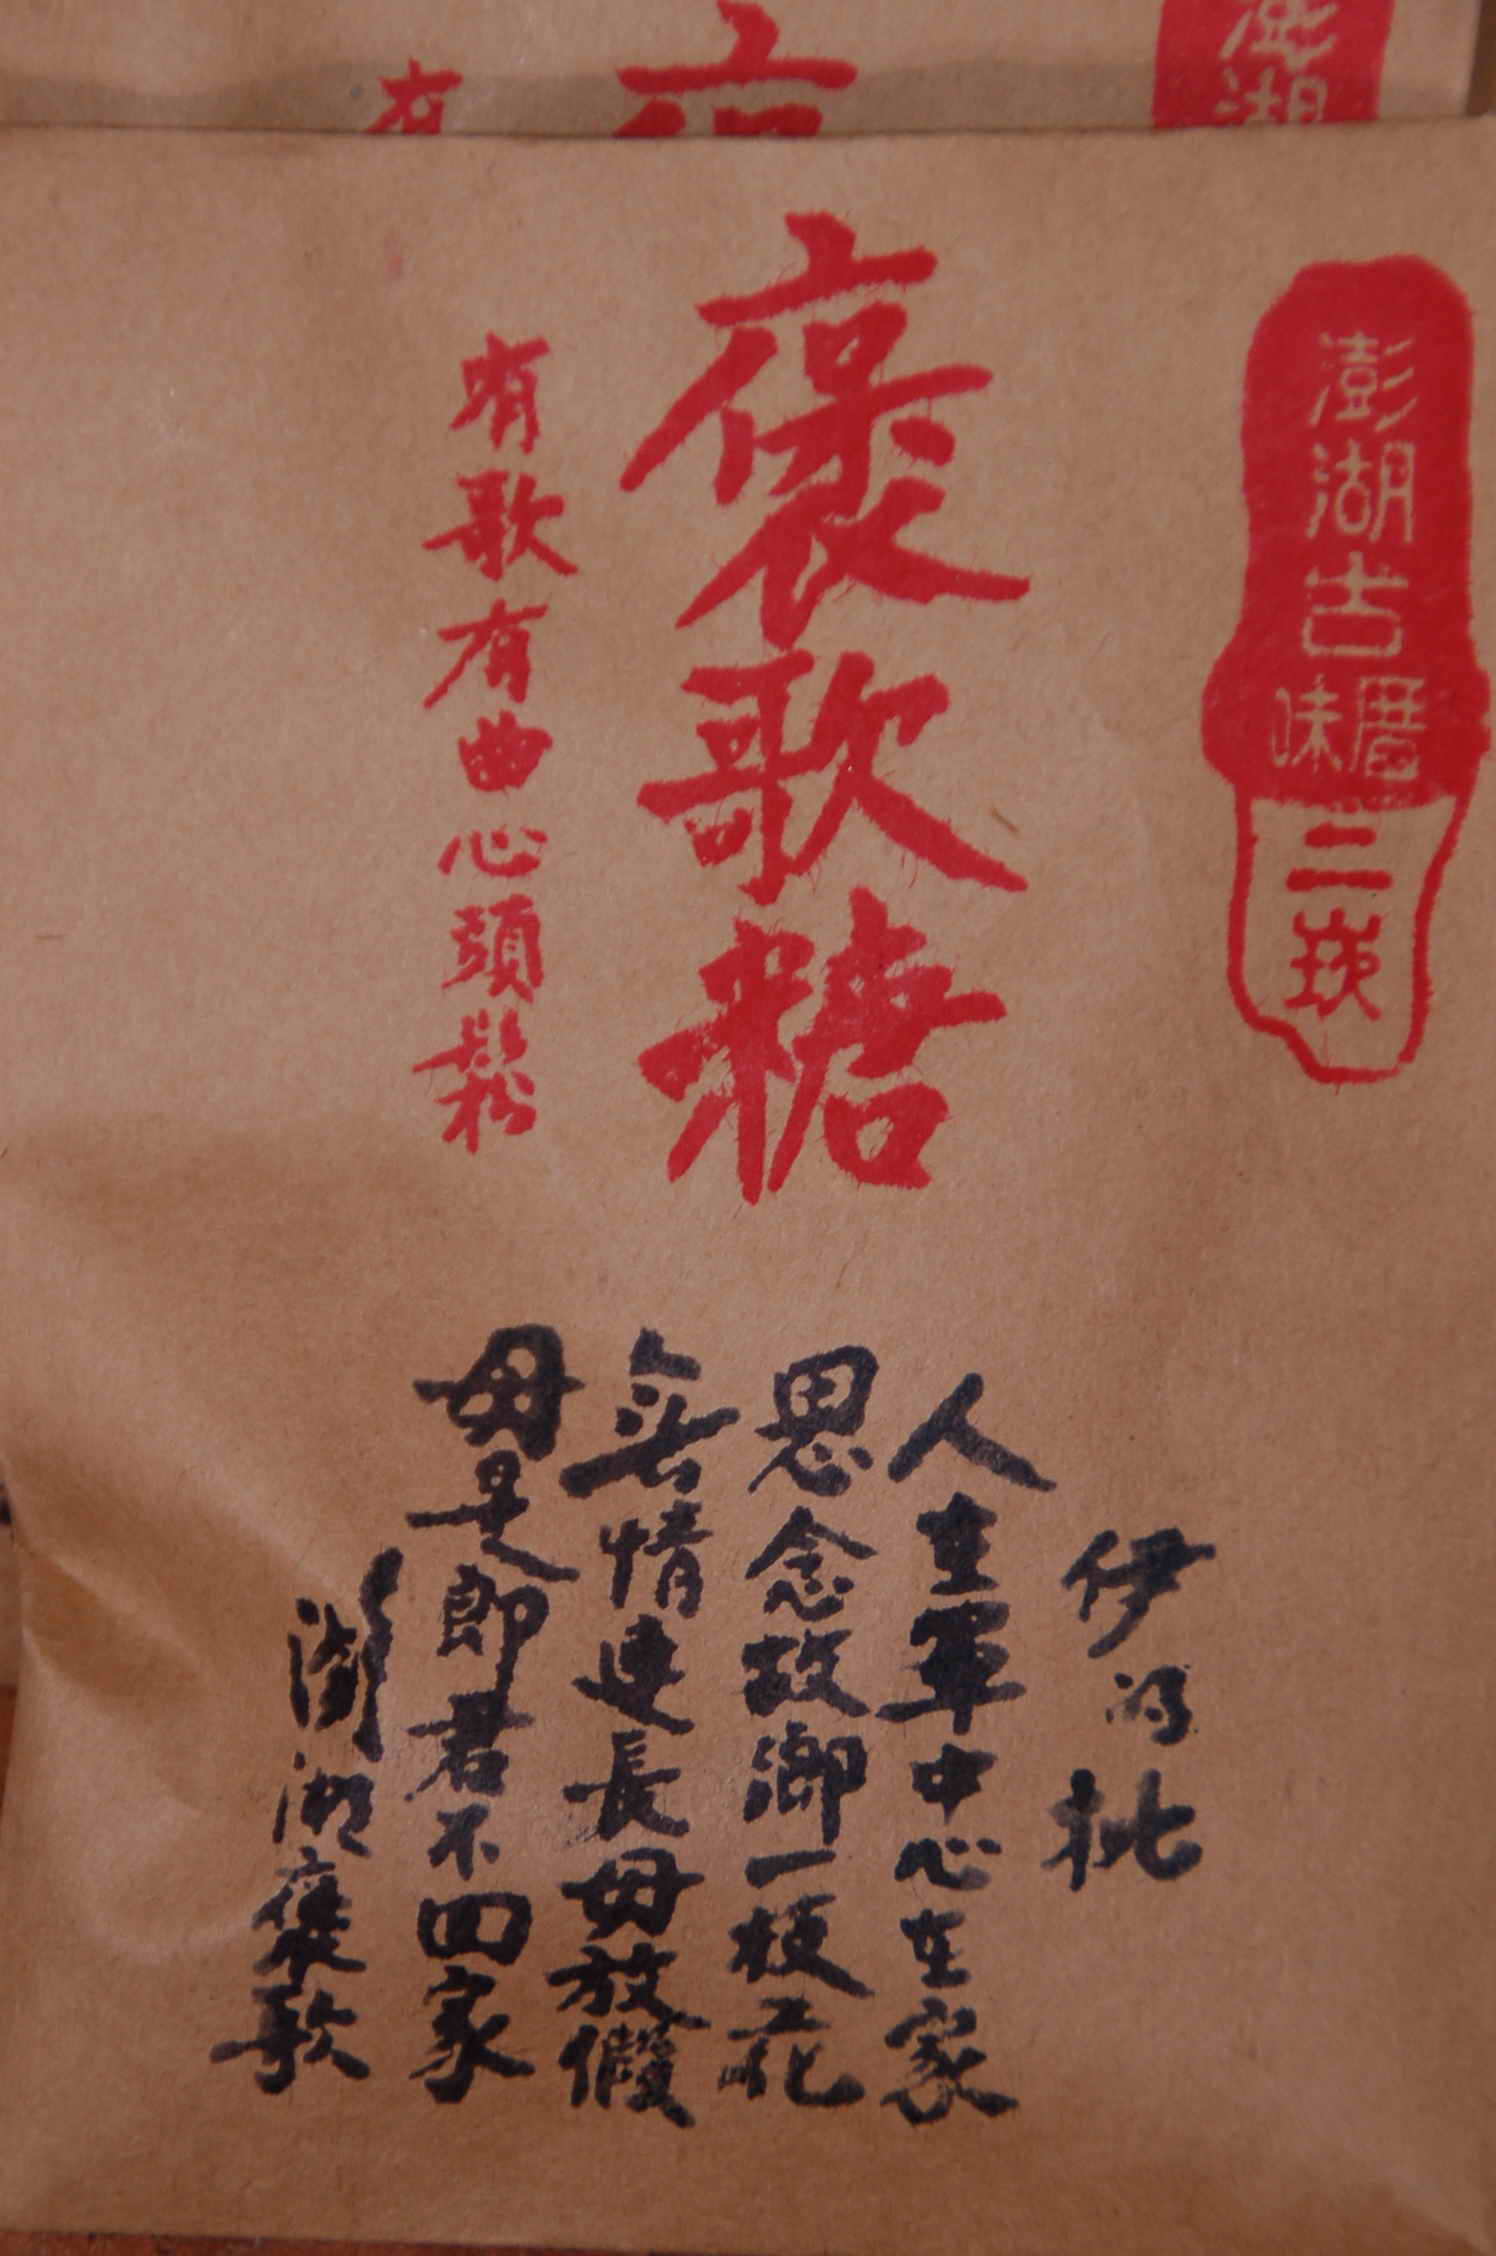 澎湖古厝味
二崁
褒歌糖
有歌有曲心頭鬆
伊的批
人在軍中心在家
思念故鄉一梗花
無情連長毋放假
毋是郎君不回家
澎湖褒歌